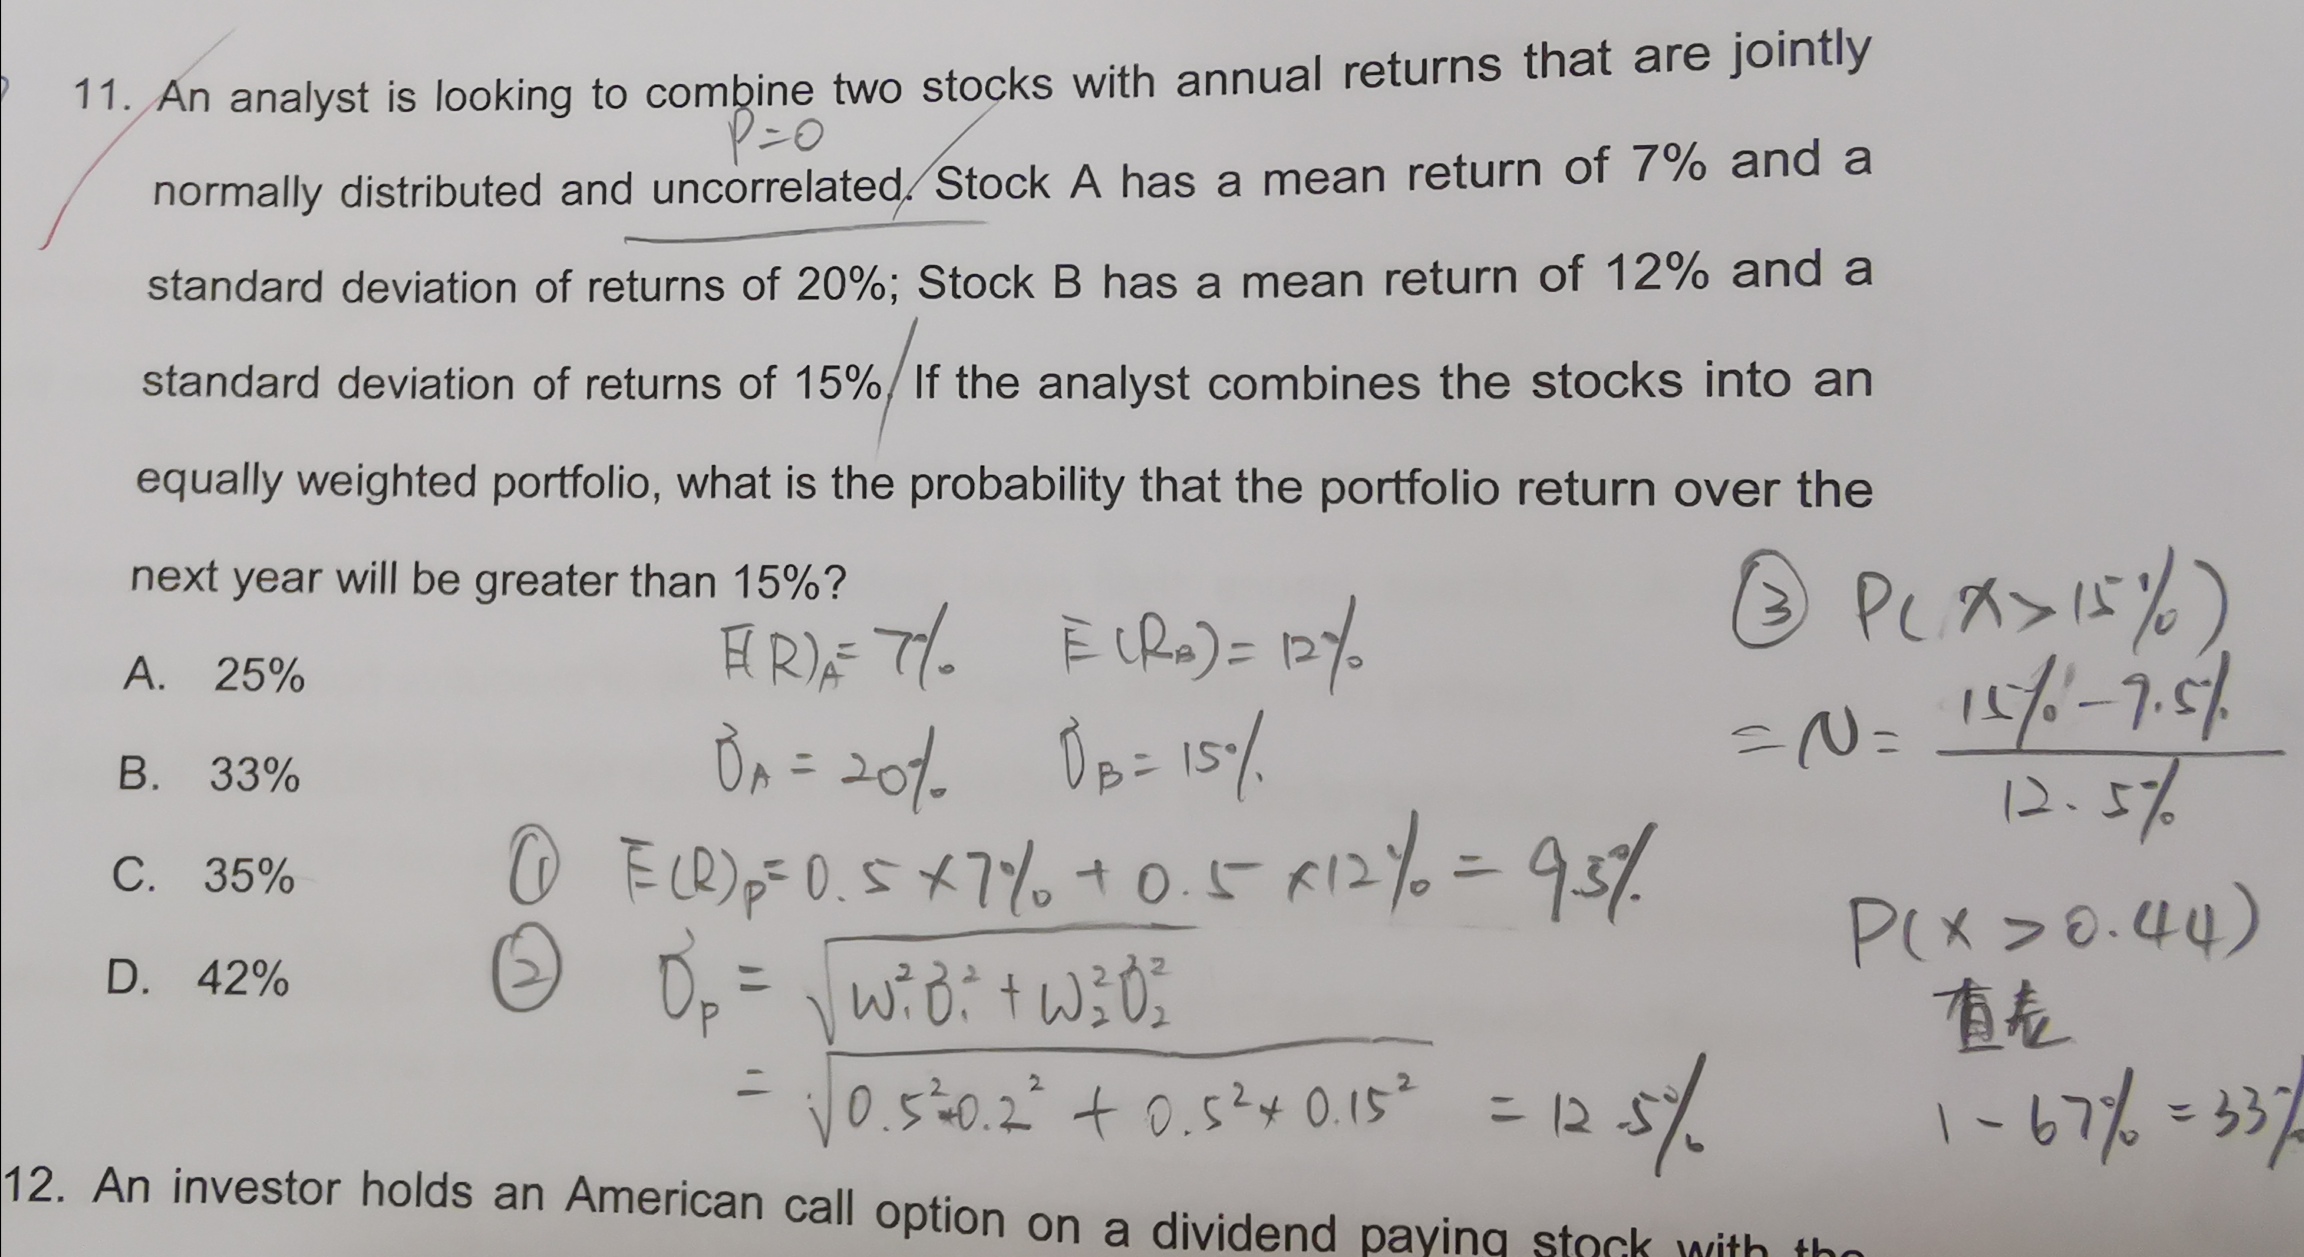 11. An analyst is looking to combine two stocks with annual returns that are jointly
ρ=0
normally distributed and uncorrelated. Stock A has a mean return of 7% and a
standard deviation of returns of 20%; Stock B has a mean return of 12% and a
standard deviation of returns of 15%. If the analyst combines the stocks into an
equally weighted portfolio, what is the probability that the portfolio return over the
next year will be greater than 15%?
A. 25%
B. 33%
C. 35%
D. 42%
E(R)A = 7% E(RB) = 12%
σA = 20% σB = 15%
① E(R)P = 0.5 × 7% + 0.5 × 12% = 9.5%
② σP = √W₁²σ₁² + W₂²σ₂²
= √0.5²×0.2² + 0.5² × 0.15² = 12.5%
③ P(X > 15%)
= N = 15% - 9.5% / 12.5%
P(X > 0.44)
表
1 - 67% = 33%
12. An investor holds an American call option on a dividend paying stock with the